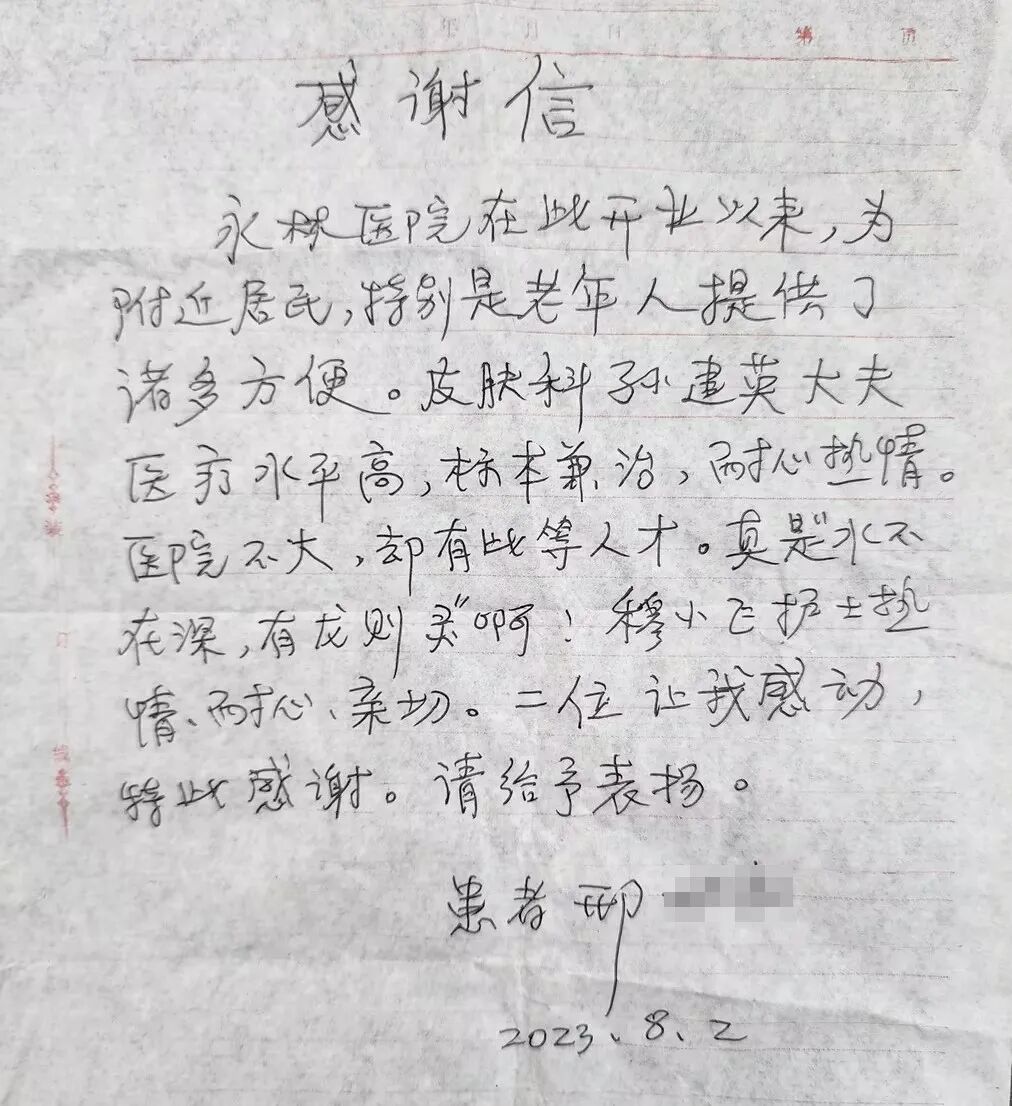 年 月 日 第 页
感谢信
永林医院在此开业以来,为
附近居民,特别是老年人提供了
诸多方便。皮肤科孙建英大夫
医疗水平高,标本兼治,耐心热情。
医院不大,却有此等人才。真是“水不
在深,有龙则灵”啊!穆小飞护士热
情、耐心、亲切。二位让我感动,
特此感谢。请给予表扬。
患者邢
2023.8.2
装
订
线